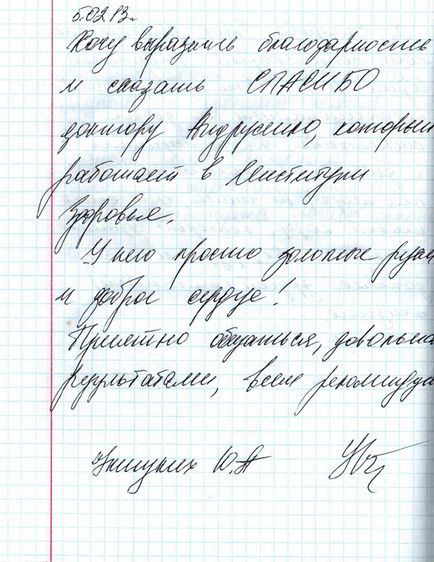 5.02.13г.
Хочу выразить благодарность
и сказать СПАСИБО
доктору Андрусенко, который
работает в Институте
Здоровья.
У него просто золотые руки
и доброе сердце!
Приятно общаться, довольна
результатами, всем рекоменду
Ю.А